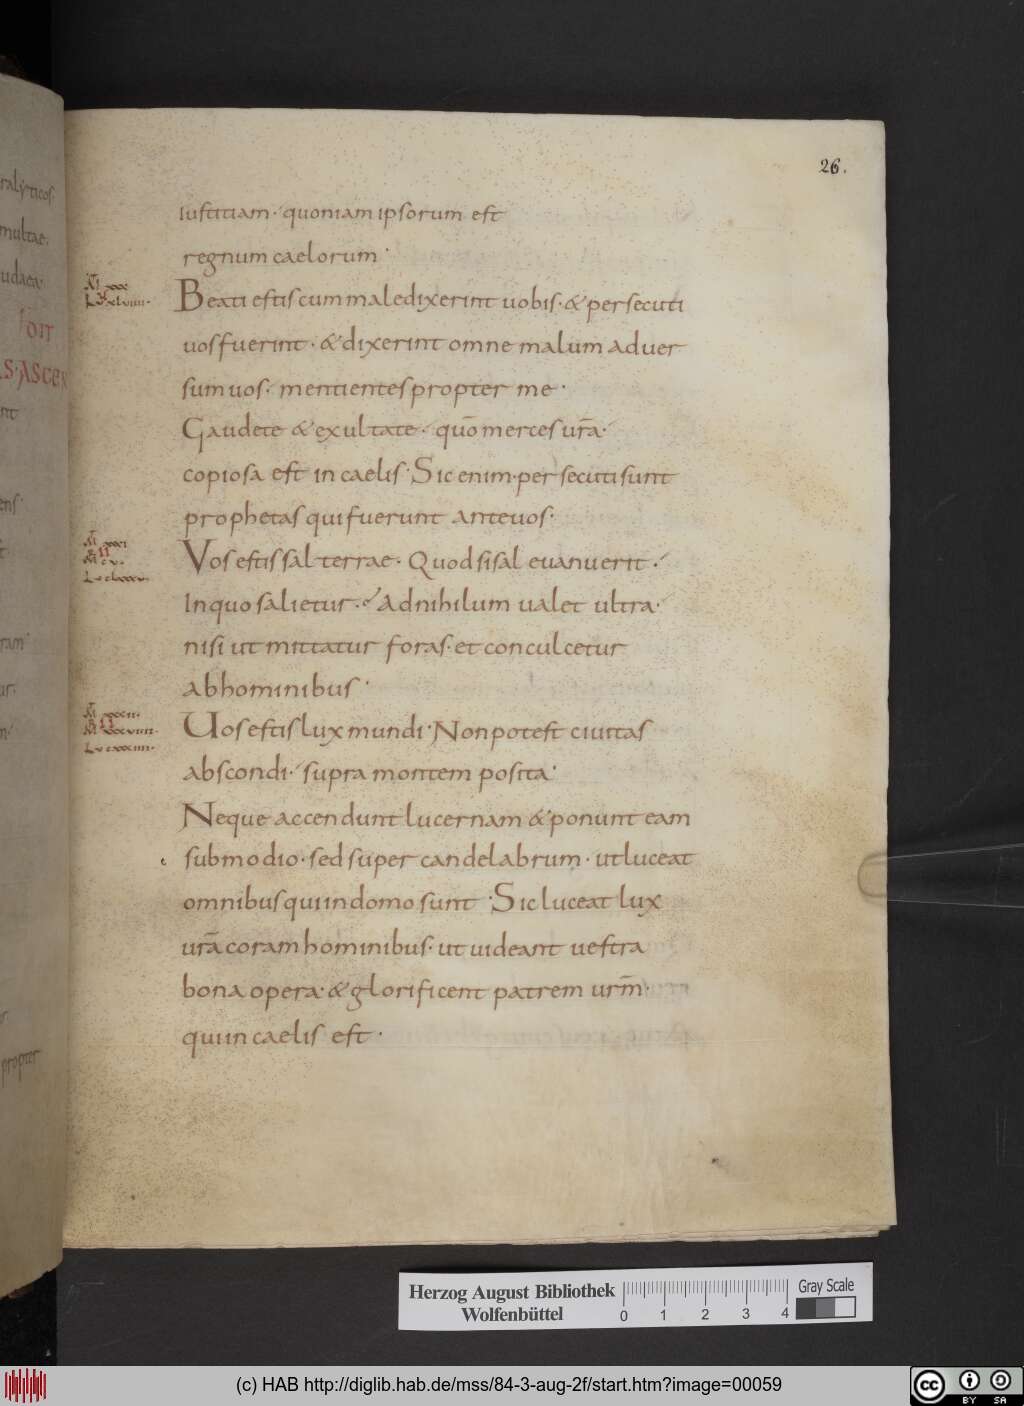 26.
iustitiam· quoniam ipsorum est
regnum caelorum·
Beati estis cum maledixerint uobis· & persecuti
uos fuerint· & dixerint omne malum aduer
sum uos· mentientes propter me·
Gaudete & exultate· quō merces ur̄a·
copiosa est in caelis· Sic enim· persecuti sunt
prophetas qui fuerunt ante uos·
Vos estis sal terrae· Quod si sal euanuerit·
In quo salietur· Ad nihilum ualet ultra·
nisi ut mittatur foras· et conculcetur
ab hominibus·
Uos estis lux mundi· Non potest ciuitas
abscondi· supra montem posita·
Neque accendunt lucernam & ponunt eam
sub modio· sed super candelabrum· ut luceat
omnibus qui in domo sunt· Sic luceat lux
ur̄a coram hominibus· ut uideant uestra
bona opera· & glorificent patrem urm̄·
qui in caelis est·
ralyticos·
multae·
udaea·
propter
Herzog August Bibliothek
Wolfenbüttel
0 1 2 3 4
Gray Scale
(c) HAB http://diglib.hab.de/mss/84-3-aug-2f/start.htm?image=00059
cc BY SA